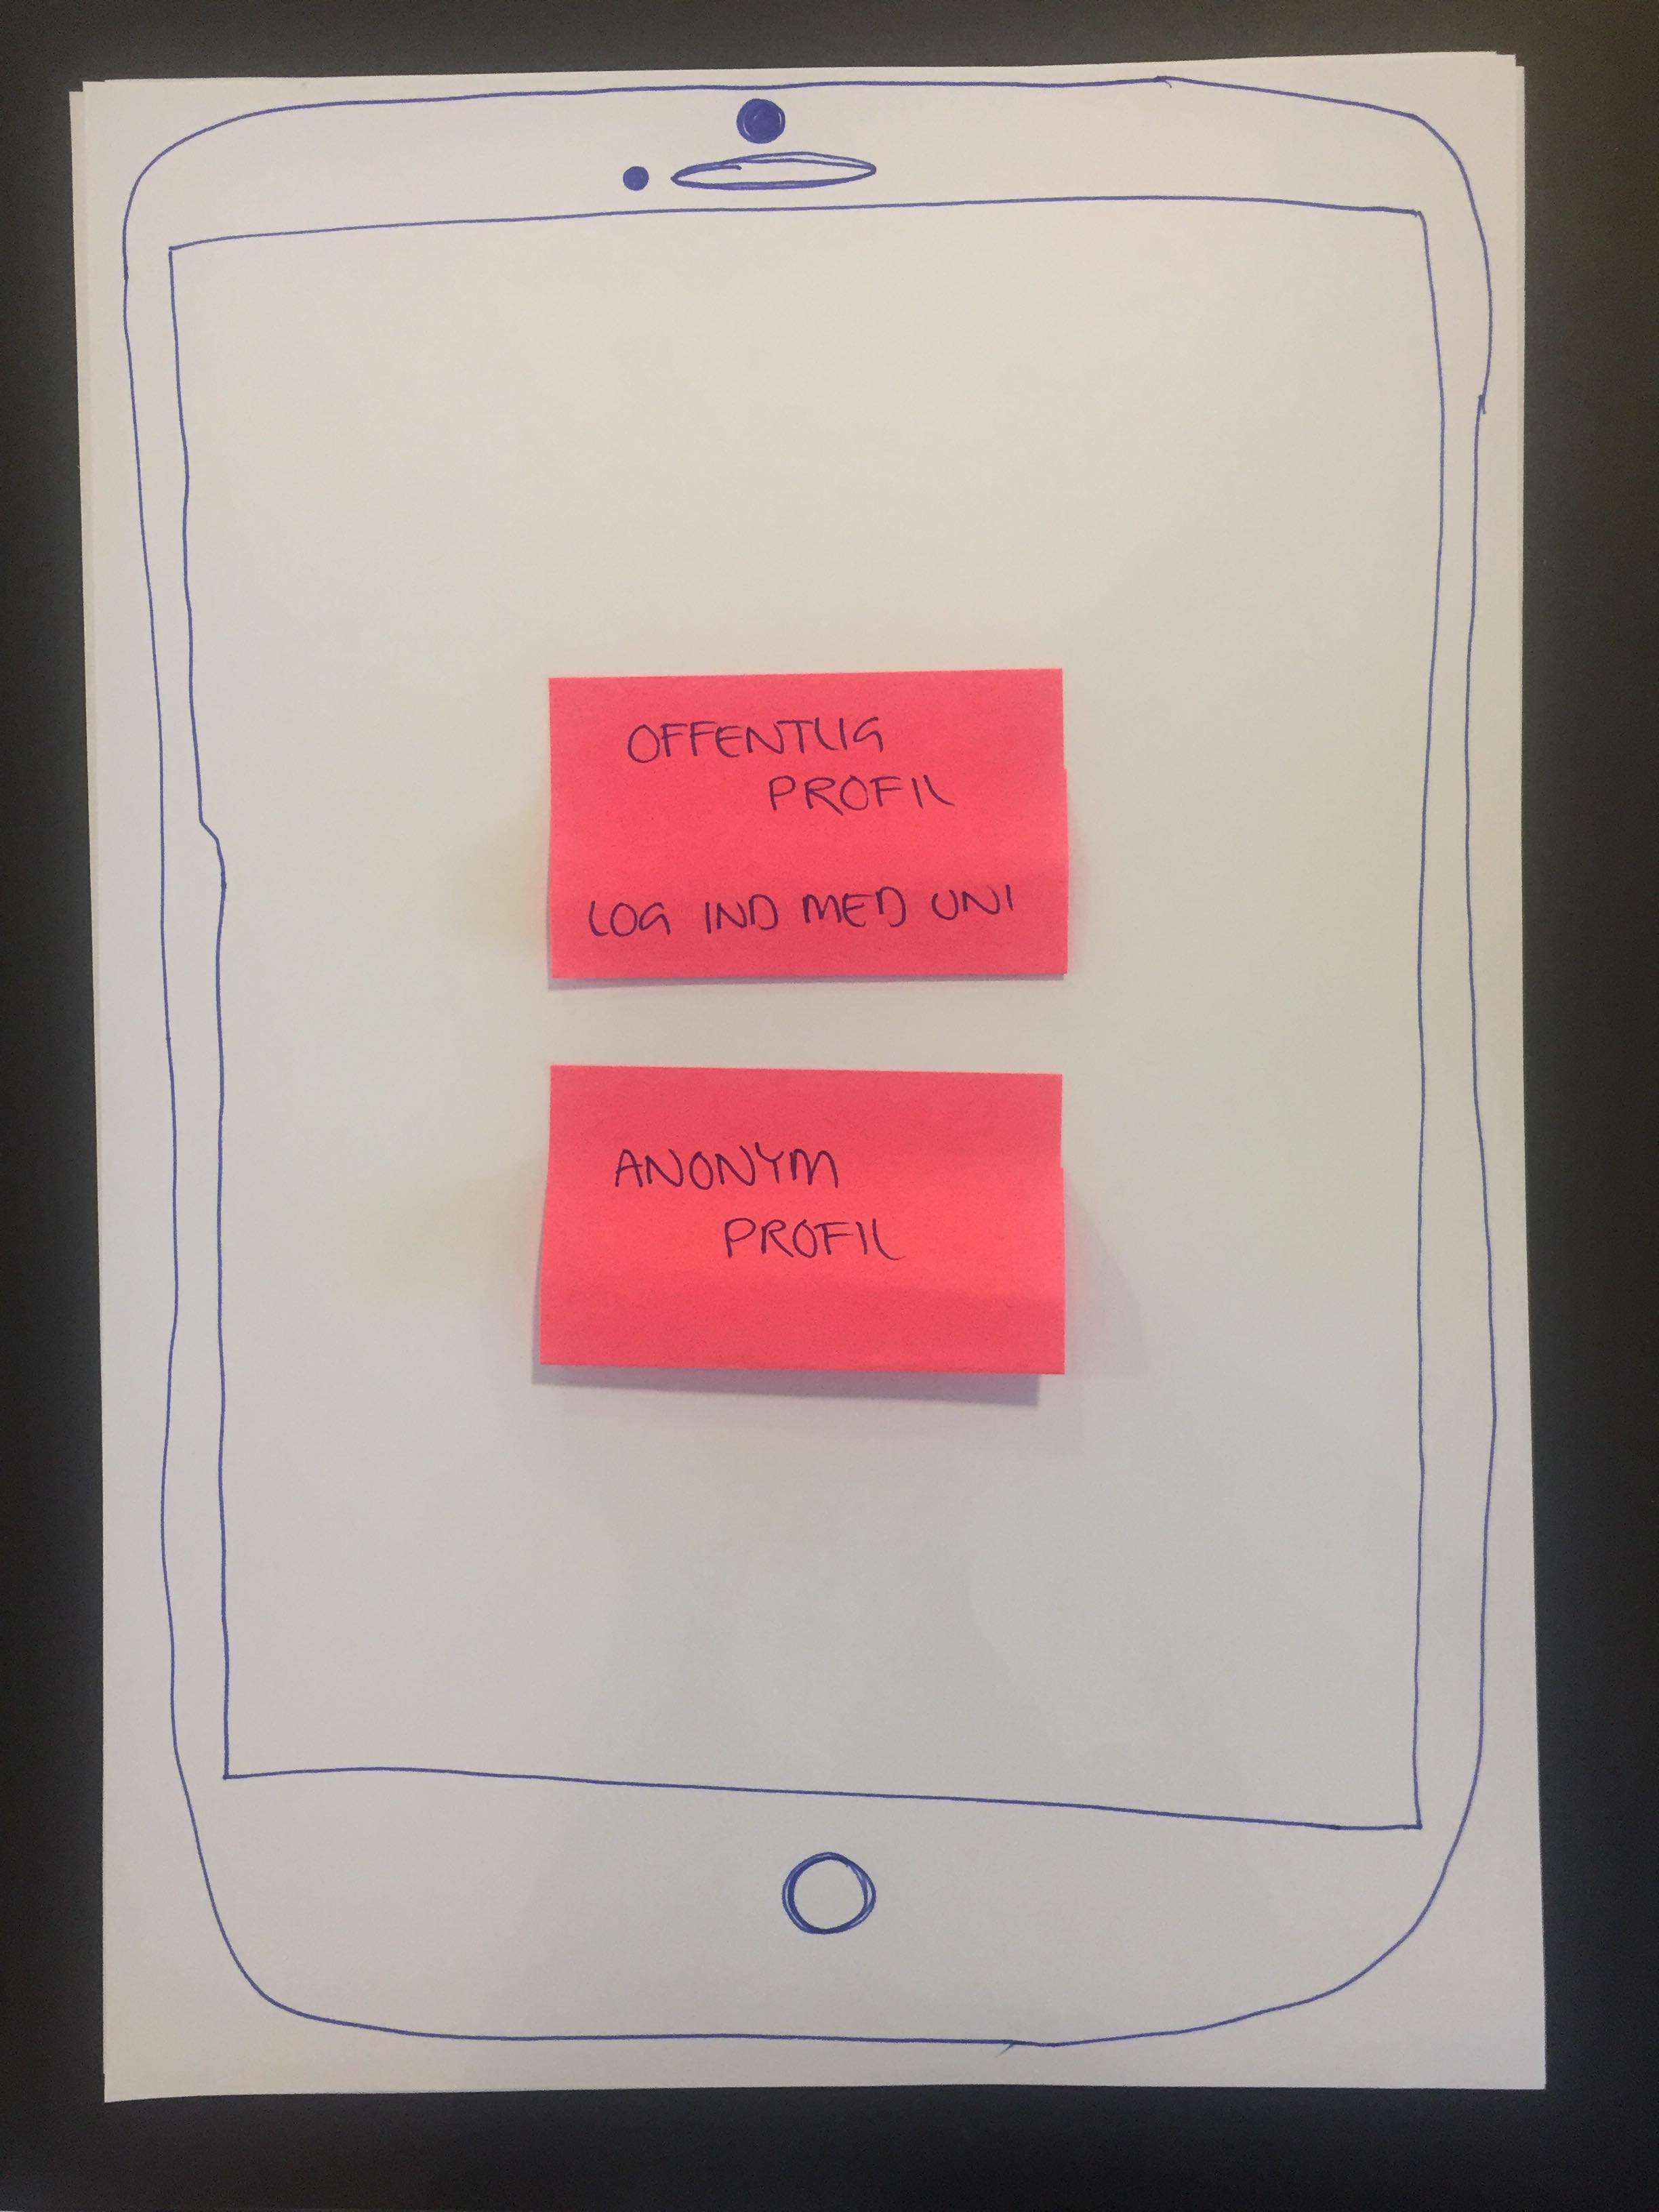 OFFENTLIG
PROFIL
LOG IND MED UNI
ANONYM
PROFIL